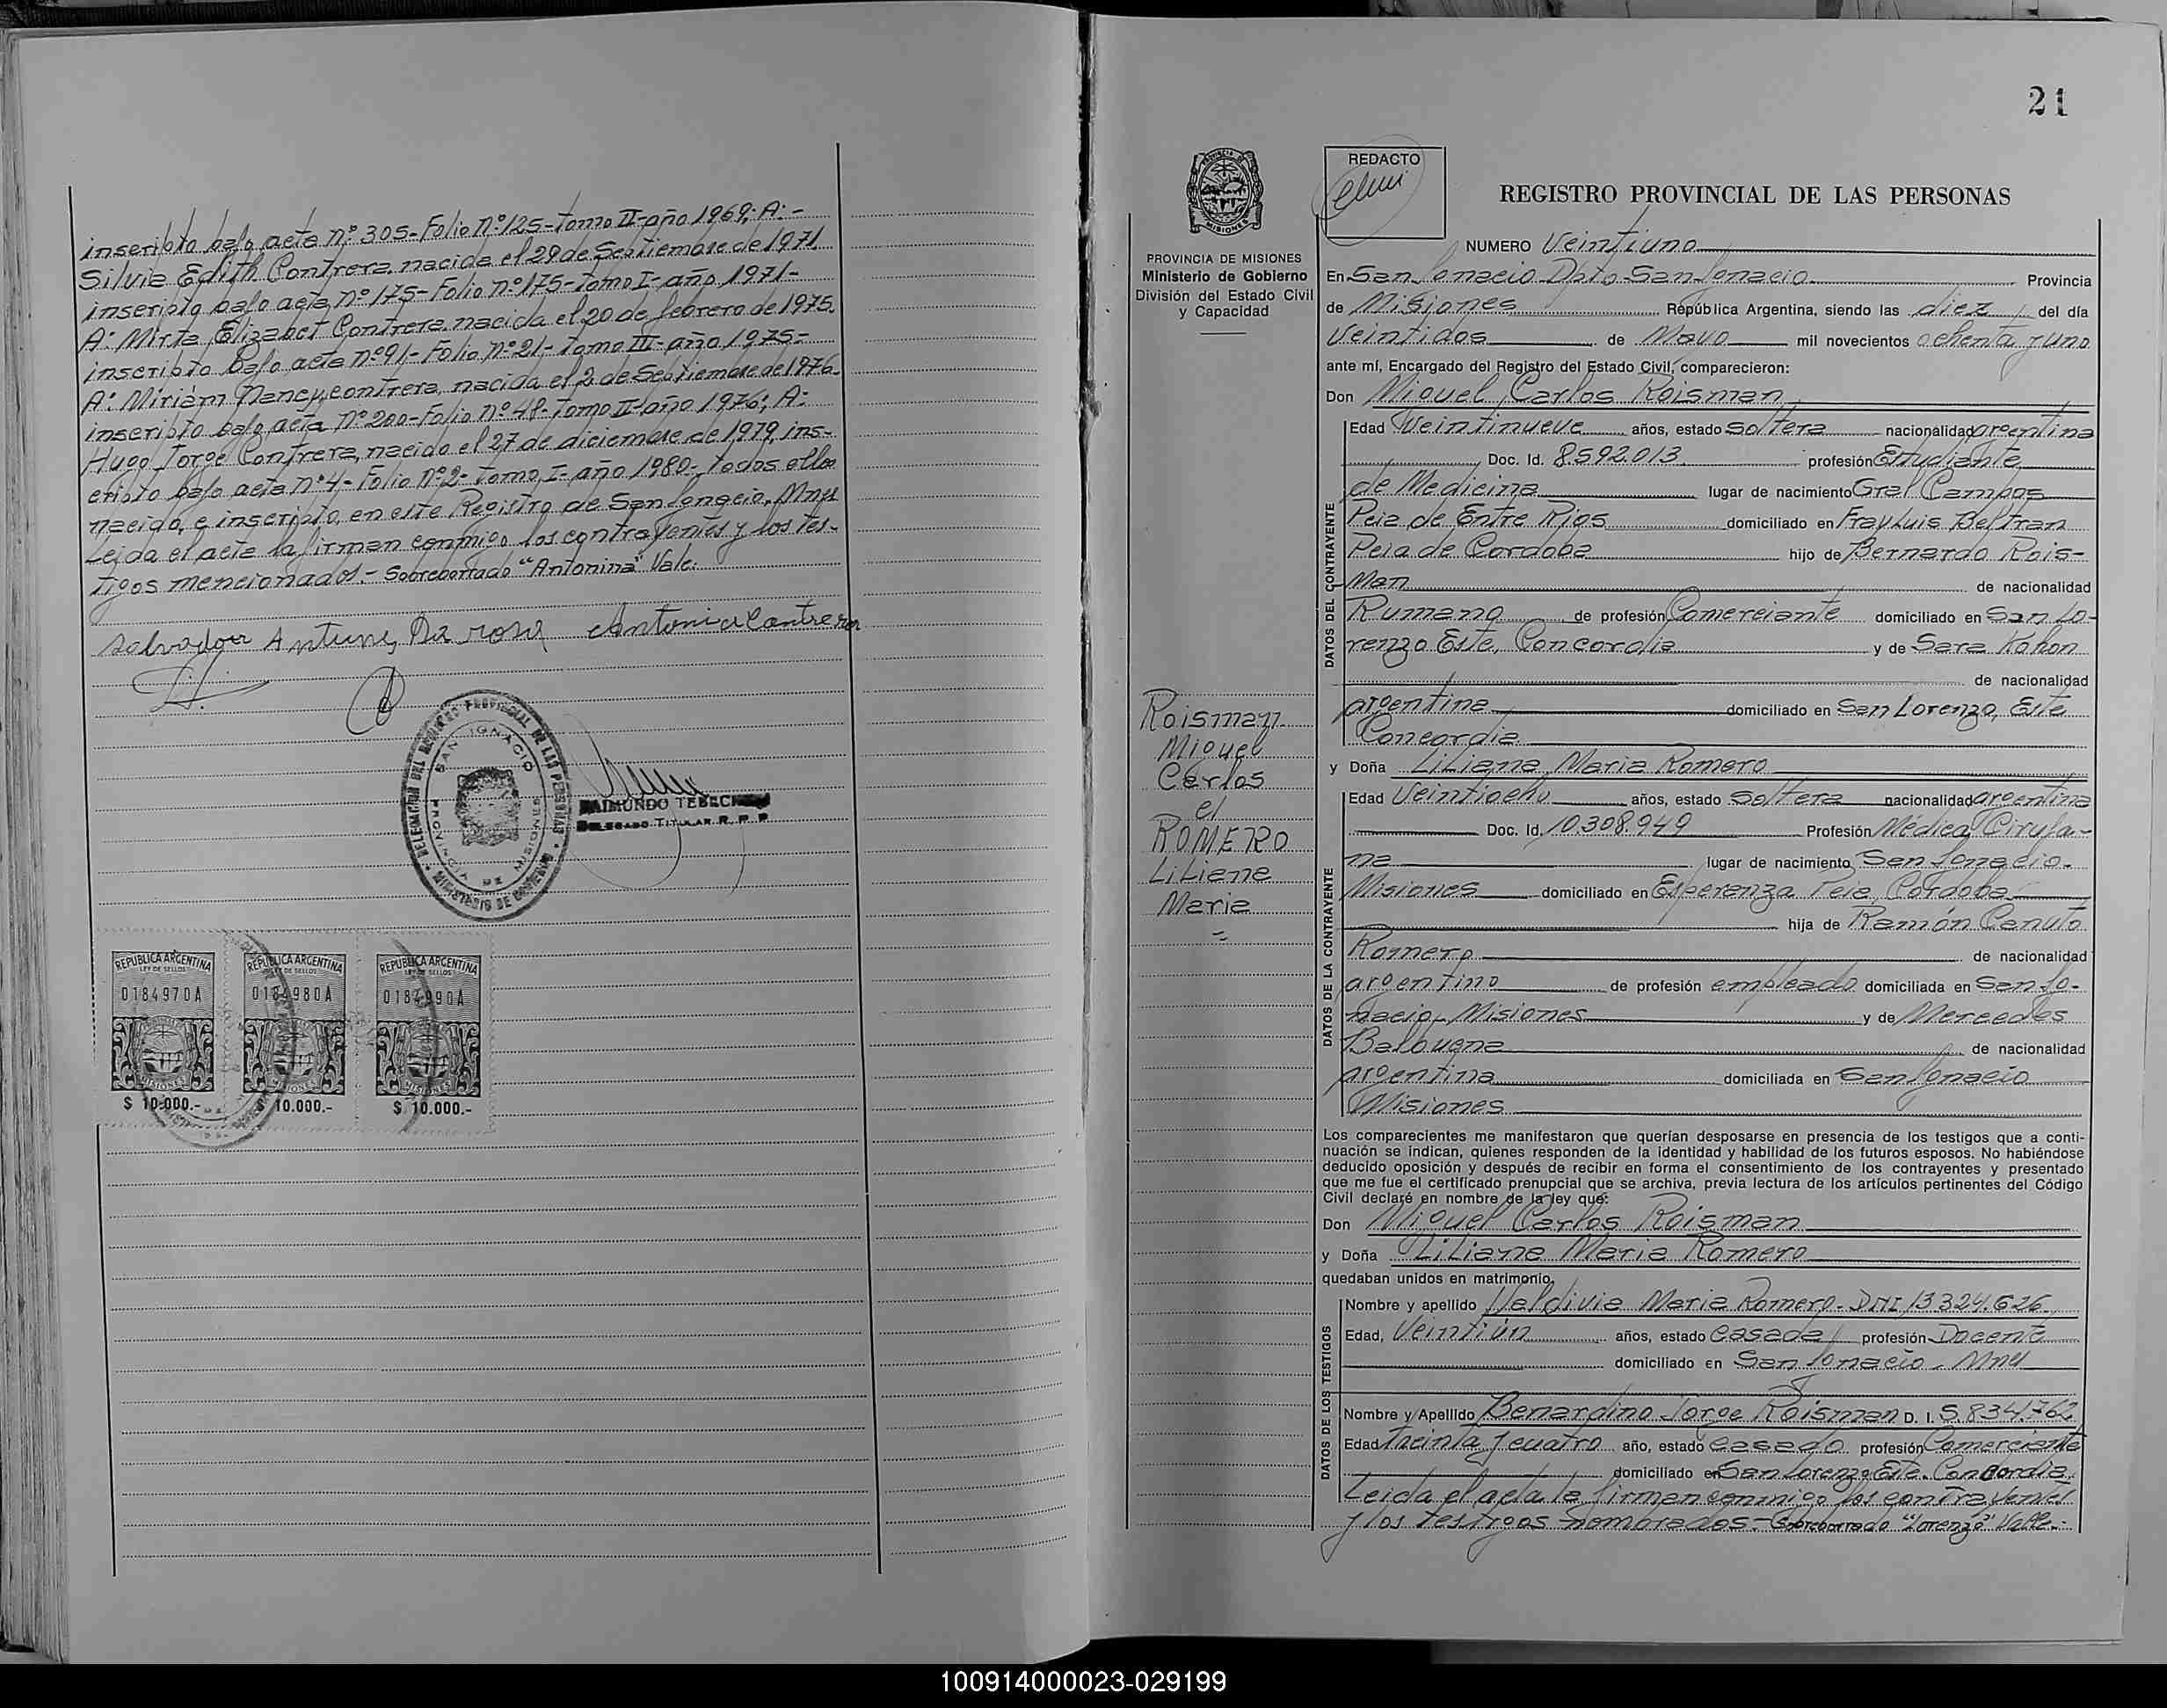 inscripto bajo acta nº 305-Folio nº 125-Tomo II-año 1969; A:-
Silvia Edith Contrera nacida el 29 de Septiembre de 1971
inscripta bajo acta nº 175-Folio nº 175-Tomo I-año 1971-
A: Mirta Elizabet Contrera nacida el 20 de febrero de 1975.
inscripto Bajo acta nº 91-Folio nº 21-Tomo III-año 1975-
A: Miriam Nancy Contrera, nacida el 2 de Septiembre de 1976.
inscripto bajo acta nº 200-Folio nº 48-Tomo II-año 1976; A:
Hugo Jorge Contrera, nacido el 27 de diciembre de 1979, ins-
cripto bajo acta nº 4-Folio nº 2-Tomo I-año 1980-, todos ellos
nacido, e inscripto, en este Registro de San Ignacio, Mnes
Leida el acta la firman conmigo los contrayentes y los tes-
tigos mencionados.- Sobreborrado "Antonina" Vale.
Salvador Antunes Da rosa Antonia Contrera
DELEGACION DEL REGISTRO PROVINCIAL DE LAS PERSONAS
SAN IGNACIO
PROVINCIA DE MISIONES
MINISTERIO DE GOBIERNO
RAIMUNDO
DELEGADO TITULAR R. P. P
REPUBLICA ARGENTINA REPUBLICA ARGENTINA REPUBLICA ARGENTINA
LEY DE SELLOS LEY DE SELLOS LEY DE SELLOS
0184970A 0184980A 0184990A
MISIONES MISIONES MISIONES
$ 10.000.- $ 10.000.- $ 10.000.-
21
PROVINCIA DE MISIONES
PROVINCIA DE MISIONES
Ministerio de Gobierno
División del Estado Civil
y Capacidad
Roisman
Miguel
Carlos
el
ROMERO
Liliana
Maria
=
REDACTO
REGISTRO PROVINCIAL DE LAS PERSONAS
NUMERO Veintiuno
En San Ignacio Dpto. San Ignacio Provincia
de Misiones República Argentina, siendo las diez del día
Veintidos de Mayo mil novecientos ochenta y uno
ante mí, Encargado del Registro del Estado Civil, comparecieron:
Don Miguel Carlos Roisman
DATOS DEL CONTRAYENTE
Edad Veintinueve años, estado Soltero nacionalidad argentina
Doc. Id. 8592.013 profesión Estudiante
de Medicina lugar de nacimiento Gral Campos
Pcia de Entre Rios domiciliado en Fray Luis Beltran
Pcia de Cordoba hijo de Bernardo Rois-
Man de nacionalidad
Rumano de profesión Comerciante domiciliado en San Lo-
renzo Este, Concordia y de Sara Kohon
de nacionalidad
argentina domiciliado en San Lorenzo, Este
Concordia
y Doña Liliana Maria Romero
DATOS DE LA CONTRAYENTE
Edad Veintiocho años, estado Soltera nacionalidad argentina
Doc. Id. 10.308.949 Profesión Médica Ciruja-
na lugar de nacimiento San Ignacio.
Misiones domiciliado en Esperanza Pcia Córdoba
hija de Ramón Canuto
Romero de nacionalidad
argentino de profesión empleado domiciliada en San Ig-
nacio, Misiones y de Mercedes
Balbuena de nacionalidad
argentina domiciliada en San Ignacio
Misiones
Los comparecientes me manifestaron que querían desposarse en presencia de los testigos que a conti-
nuación se indican, quienes responden de la identidad y habilidad de los futuros esposos. No habiéndose
deducido oposición y después de recibir en forma el consentimiento de los contrayentes y presentado
que me fue el certificado prenupcial que se archiva, previa lectura de los artículos pertinentes del Código
Civil declaré en nombre de la ley que:
Don Miguel Carlos Roisman
y Doña Liliana Maria Romero
quedaban unidos en matrimonio.
DATOS DE LOS TESTIGOS
Nombre y apellido Valdivia Maria Romero - DNI 13324.626
Edad, Veintiún años, estado casada profesión Docente
domiciliado en San Ignacio - Mnes
Nombre y Apellido Benardino Jorge Roisman D. I. 5.834.762
Edad Treinta y cuatro año, estado casado profesión Comerciante
domiciliado en San Lorenzo Este. Concordia
Leida el acta la firman conmigo los contrayentes
y los testigos nombrados.- Sobreborrado "Lorenzo" Valle.-
100914000023-029199